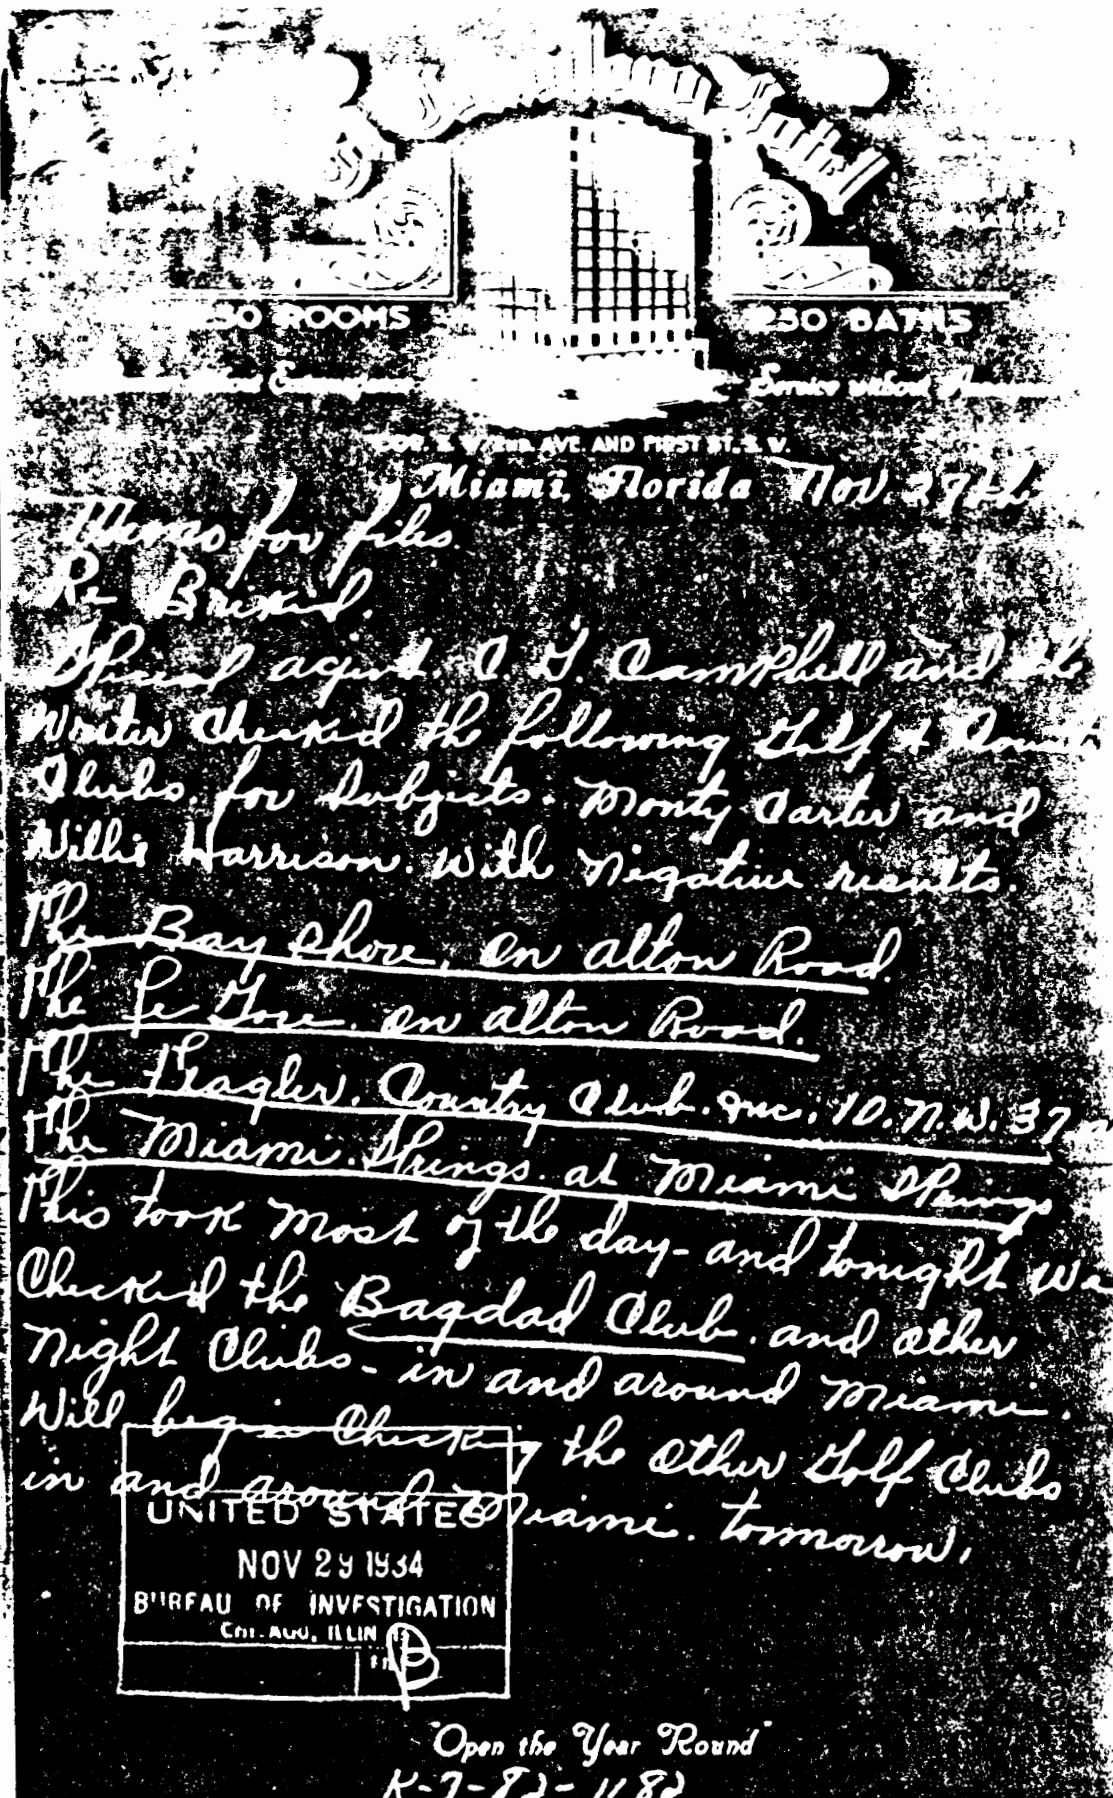 ROOMS
250 BATHS
Service without
AVE. AND FIRST ST. S. W.
Miami, Florida Nov. 27th
Memo for files.
Re Brekid.
Special agent. C. G. Campbell and the
Writer Checked the following Golf & Country
Clubs. for Subjects. Monty Carter and
Willie Harrison. With Negative results.
The Bay Shore, on alton Road.
The Le Gore. on alton Road.
The Flagler. Country Club. Inc. 10. N.W. 37
The Miami. Springs. at Miami Springs
This took Most of the day - and tonight we
Checked the Bagdad Club. and other
Night Clubs - in and around Miami.
Will begin Checking the other Golf Clubs
in and around Miami. tommorrow.
UNITED STATES
NOV 29 1934
BUREAU OF INVESTIGATION
CHICAGO, ILLIN
"Open the Year Round"
K-7-82-1182